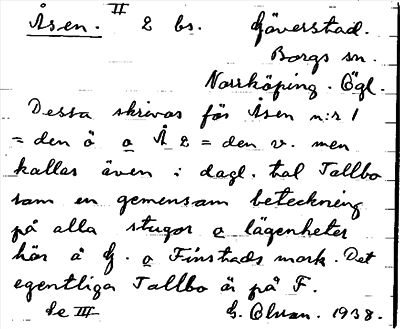 Åsen. II 2 bs. Göverstad.
Borgs sn.
Norrköping. Ögl.
Dessa skrivas för Åsen n:r 1
= den ö o Å 2 = den v. men
kallas även i dagl. tal Tallbo
som en gemensam beteckning
på alla stugor o lägenheter
här å G. o Finstads mark. Det
egentliga Tallbo är på F.
Se III G. Olsson. 1938.